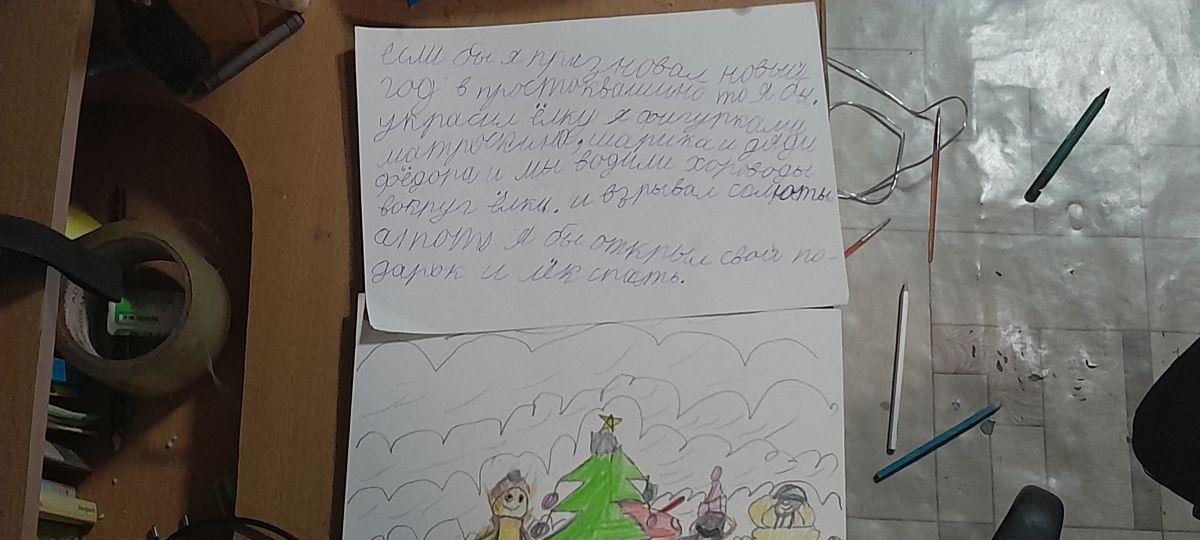 если бы я призновал новый
год в простоквашино то я бы.
украсил ёлку я фигурками
матроскина, шарика и дяди
фёдора и мы водили хороводы
вокруг ёлки. и взрывал солюты
я бы открыл свой по-
дарок и лёк спать.